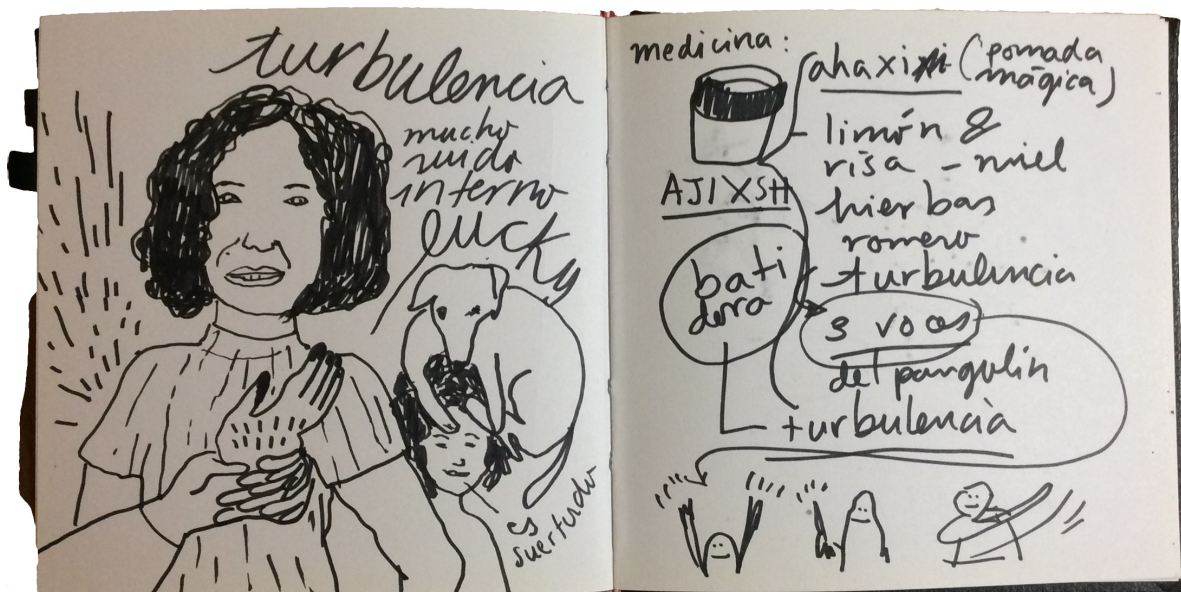 turbulencia
mucho
ruido
interno
lucky
es
suertudo
medicina:
ahaxi (pomada
mágica)
limón &
risa - miel
AJIXSH
hierbas
romero
bati
dora
turbulencia
3 voces
del pangolin
turbulencia